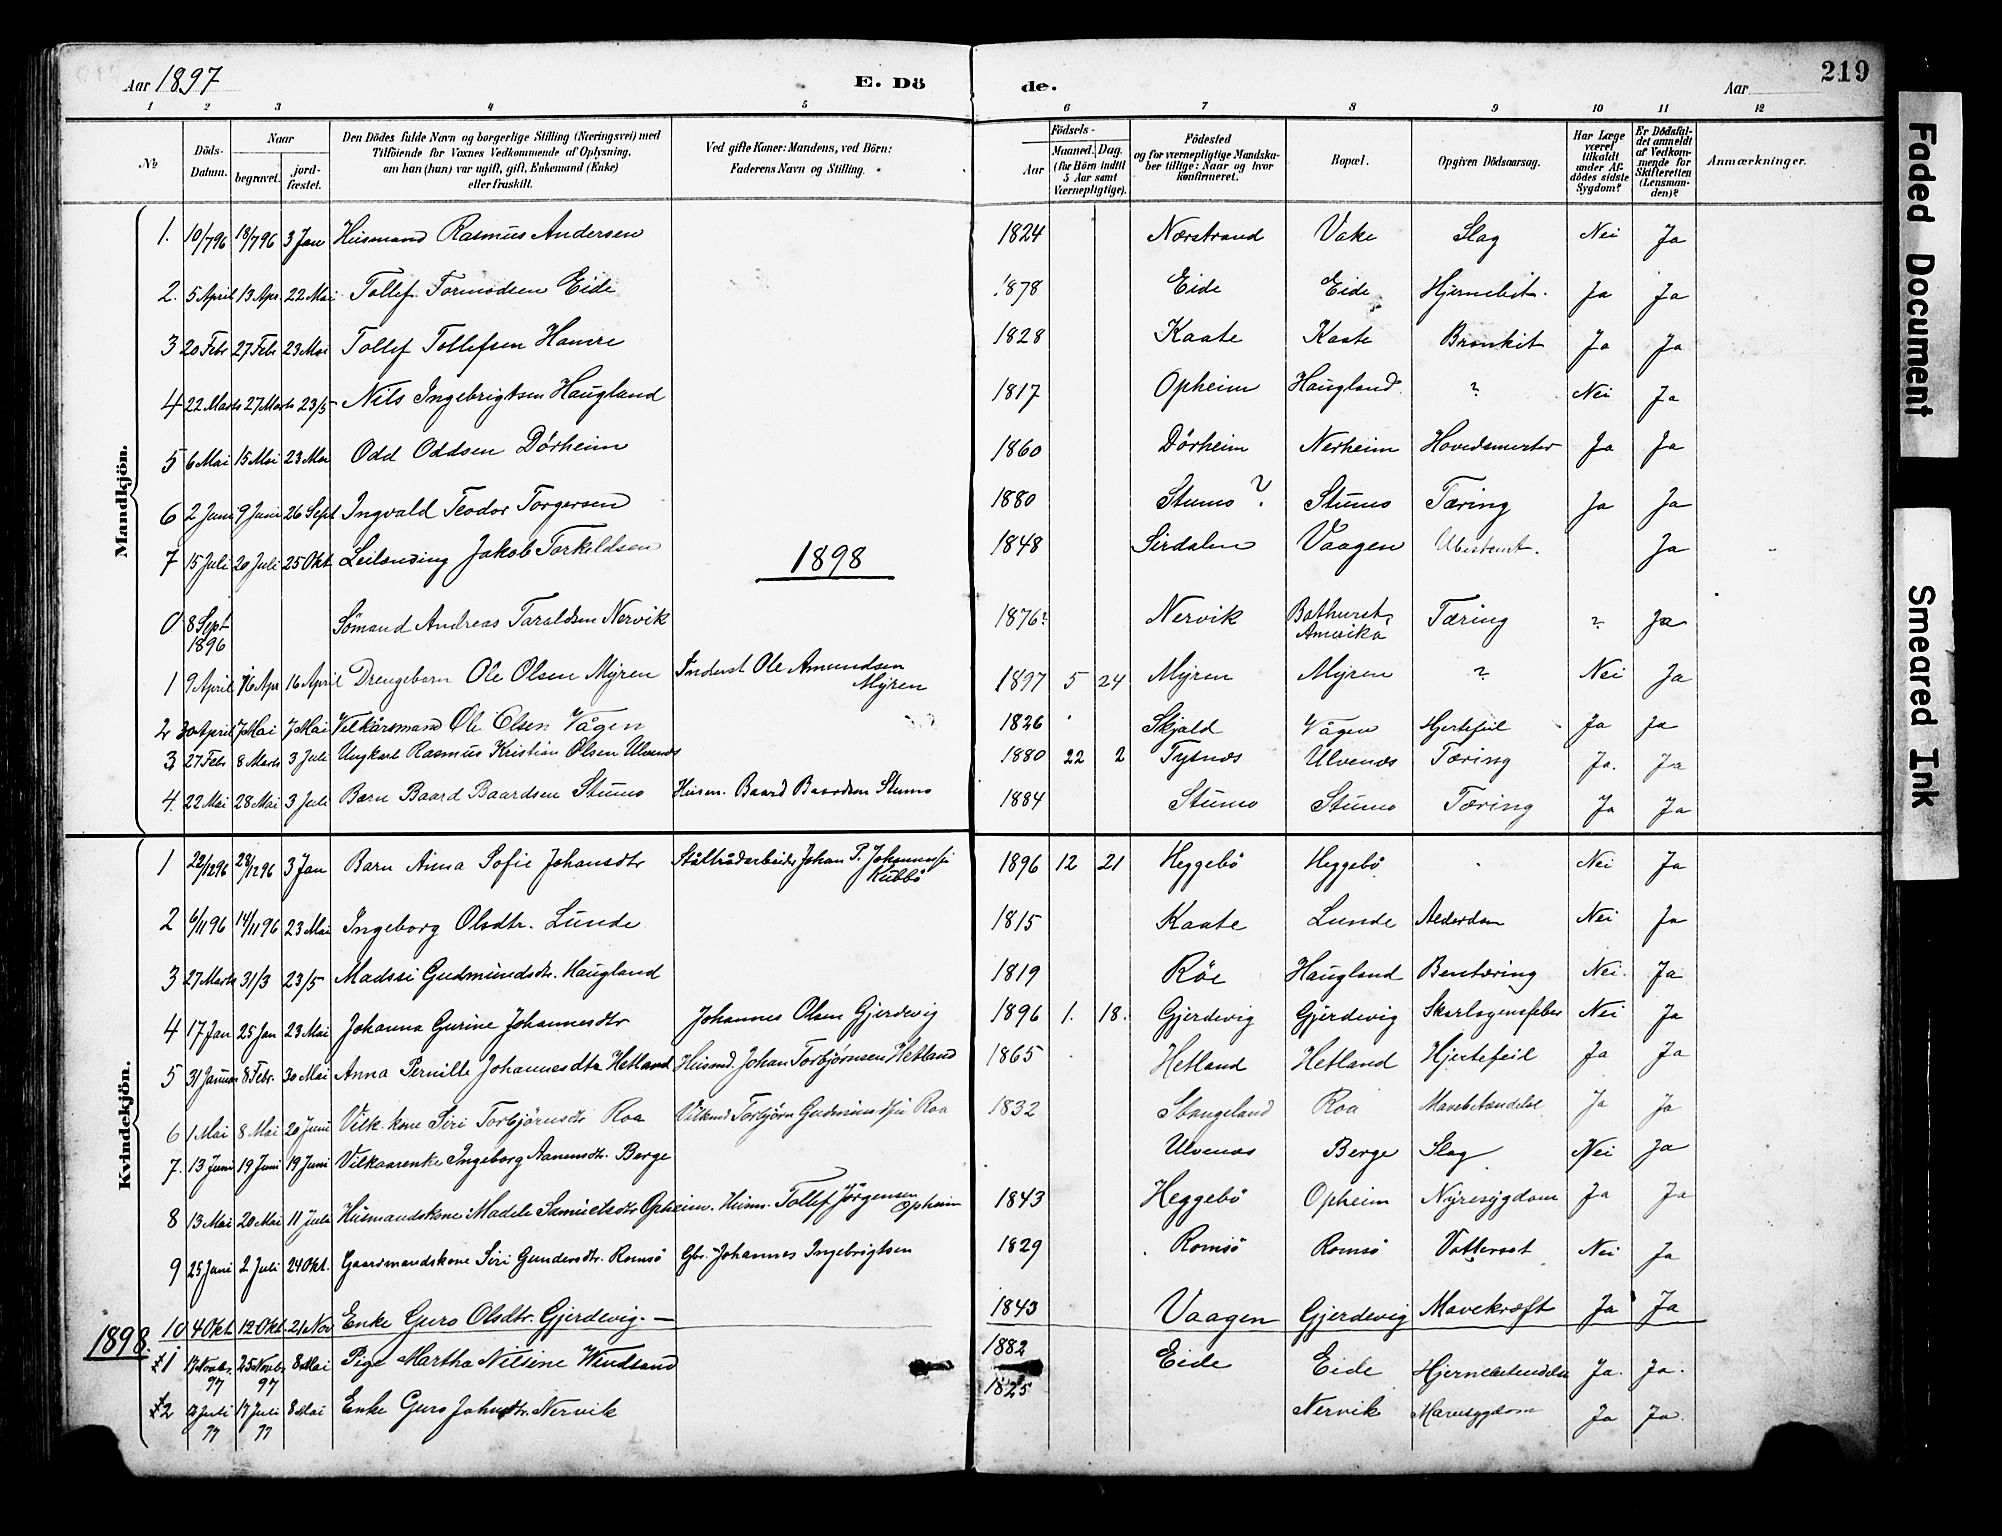 Aar 1897
E. Dö de.
Aar
219
1 2 3 4 5 6 7 8 9 10 11 12
№
Döds-Datum.
Naar
begravet.
jordfæstet.
Den Dödes fulde Navn og borgerlige Stilling (Næringsvei) med
Tilföiende for Voxnes Vedkommende af Oplysning,
om han (hun) var ugift, gift, Enkemand (Enke)
eller fraskilt.
Ved gifte Koner: Mandens, ved Börn:
Faderens Navn og Stilling.
Födsels-
Aar
Maaned. Dag.
(for Börn indtil
5 Aar samt
Værnepligtige).
Födested
og for værnepligtige Mandskaber tillige: Naar og hvor
konfirmeret.
Bopæl.
Opgiven Dödsaarsag.
Har Læge været tilkaldt under Afdödes sidste Sygdom?
Er Dödsfaldet anmeldt af Vedkommende for Skifteretten (Lensmanden)?
Anmærkninger.
Mandkjön.
1. 10/796 18/796 3 Jan Husmand Rasmus Andersen 1824 Nærstrand Vake Slag Nei Ja
2. 5 April 13 Apr 22 Mai Tollef Tormodsen Eide 1878 Eide Eide Hjernebet. Ja Ja
3 20 Febr 27 Feb 23 Mai Tollef Tollefsen Hamre 1828 Kaate Kaate Bronkit Ja Ja
4 22 Marts 27 Marts 23/5 Nils Ingebrigtsen Haugland 1817 Opheim Haugland ? Nei Ja
5 6 Mai 15 Mai 23 Mai Odd Oddsen Dörheim 1860 Dörheim Nerheim Hovedsmerter Ja Ja
6 2 Juni 9 Juni 26 Sept Ingvald Teodor Torgersen 1880 Stumo ? Stumo Tæring Ja Ja
7 15 Juli 20 Juli 25 Okt Leilending Jakob Torkildsen 1848 Sirdalen Vaagen Ubestemt. Ja
1898
0 8 Sept 1896 Sömand Andreas Taraldsen Nervik 1876? Nervik Bathurst, Amerika Tæring ? Ja
1 9 April 16 Apr 16 April Drengebarn Ole Olsen Myren Inderst Ole Amundsen Myren 1897 5 24 Myren Myren ? Nei Ja
2 30 April 7 Mai 7 Mai Vilkårsmand Ole Olsen Vågen 1826 Skjold Vågen Hjertefeil Ja Ja
3 27 Feb 8 Marts 3 Juli Ungkarl Rasmus Kristian Olsen Ulvenes 1880 22 2 Tysnes Ulvenes Tæring Ja. Ja
4. 22 Mai 28 Mai 3 Juli Barn Baard Baardsen Stumo Husm. Baard Baardsen Stumo 1884 Stumo Stumo Tæring Ja Ja
Kvindekjön.
1 22/1296 28/1296 3 Jan Barn Anna Sofie Johansdtr Ståltrådarbeider Johan P. Kubbö 1896 12 21 Heggebö Heggebö Nei Ja
2 6/1196 14/1196 23 Mai Ingeborg Olsdtr. Lunde 1815 Kaate Lunde Alderdom Nei Ja
3 27 Marts 31/3 23/5 Madssi Gudmundsdtr. Haugland 1819 Röe Haugland Bentæring Nei. Ja
4 17 Jan 25 Jan 23 Mai Johanna Gurine Johannesdtr Johannes Olsen Gjerdevig 1896 1. 18. Gjerdevig Gjerdevig Skarlagensfeber Nei Ja
5 31 Januar 8 Febr. 30 Mai Anna Pernille Johannesdtr Hetland Husmd. Johan Torbjörnsen Hetland 1865 Hetland Hetland Hjertefeil Ja Ja
6 1 Mai 8 Mai 20 Juni Vilk. kone Siri Torbjörnsdtr Roa Vilkmd Torbjörn Gudmunds Roa 1832 Stangeland Roa Mavebetændelse Ja Ja
7. 13 Juni 19 Juni 19 Juni Vilkaarenke Ingeborg Aanensdtr. Berge Ulvenes Berge Slag Nei Ja
8 13 Mai 20 Mai 11 Juli Husmandskone Madele Samuelsdtr Opheim. Husm. Tollef Jörgensen Opheim 1843 Heggebö Opheim Nyresygdom Ja Ja
9 25 Juni 2 Juli 24 Okt. Gaardmandskone Siri Gundersdtr. Romsö Gbr. Johannes Ingebrigtsen 1829 Romsö Romsö Vattersot Nei Ja
10 4 Okt 12 Okt. 21 Nov Enke Guro Olsdtr. Gjerdevig. — 1843 Vaagen Gjerdevig Mavekræft Ja Ja
1898.
1 17 Novbr 97 25 Novbr 97 8 Mai Pige Martha Nilsine Windsand 1882 Eide Eide Hjernebetændelse Ja. Ja.
2 Juli 97 17 Juli 97 8 Mai Enke Guro Johnsdtr. Nervik 1825 Nervik Mavesygdom Ja Ja.
Faded Document
Smeared Ink